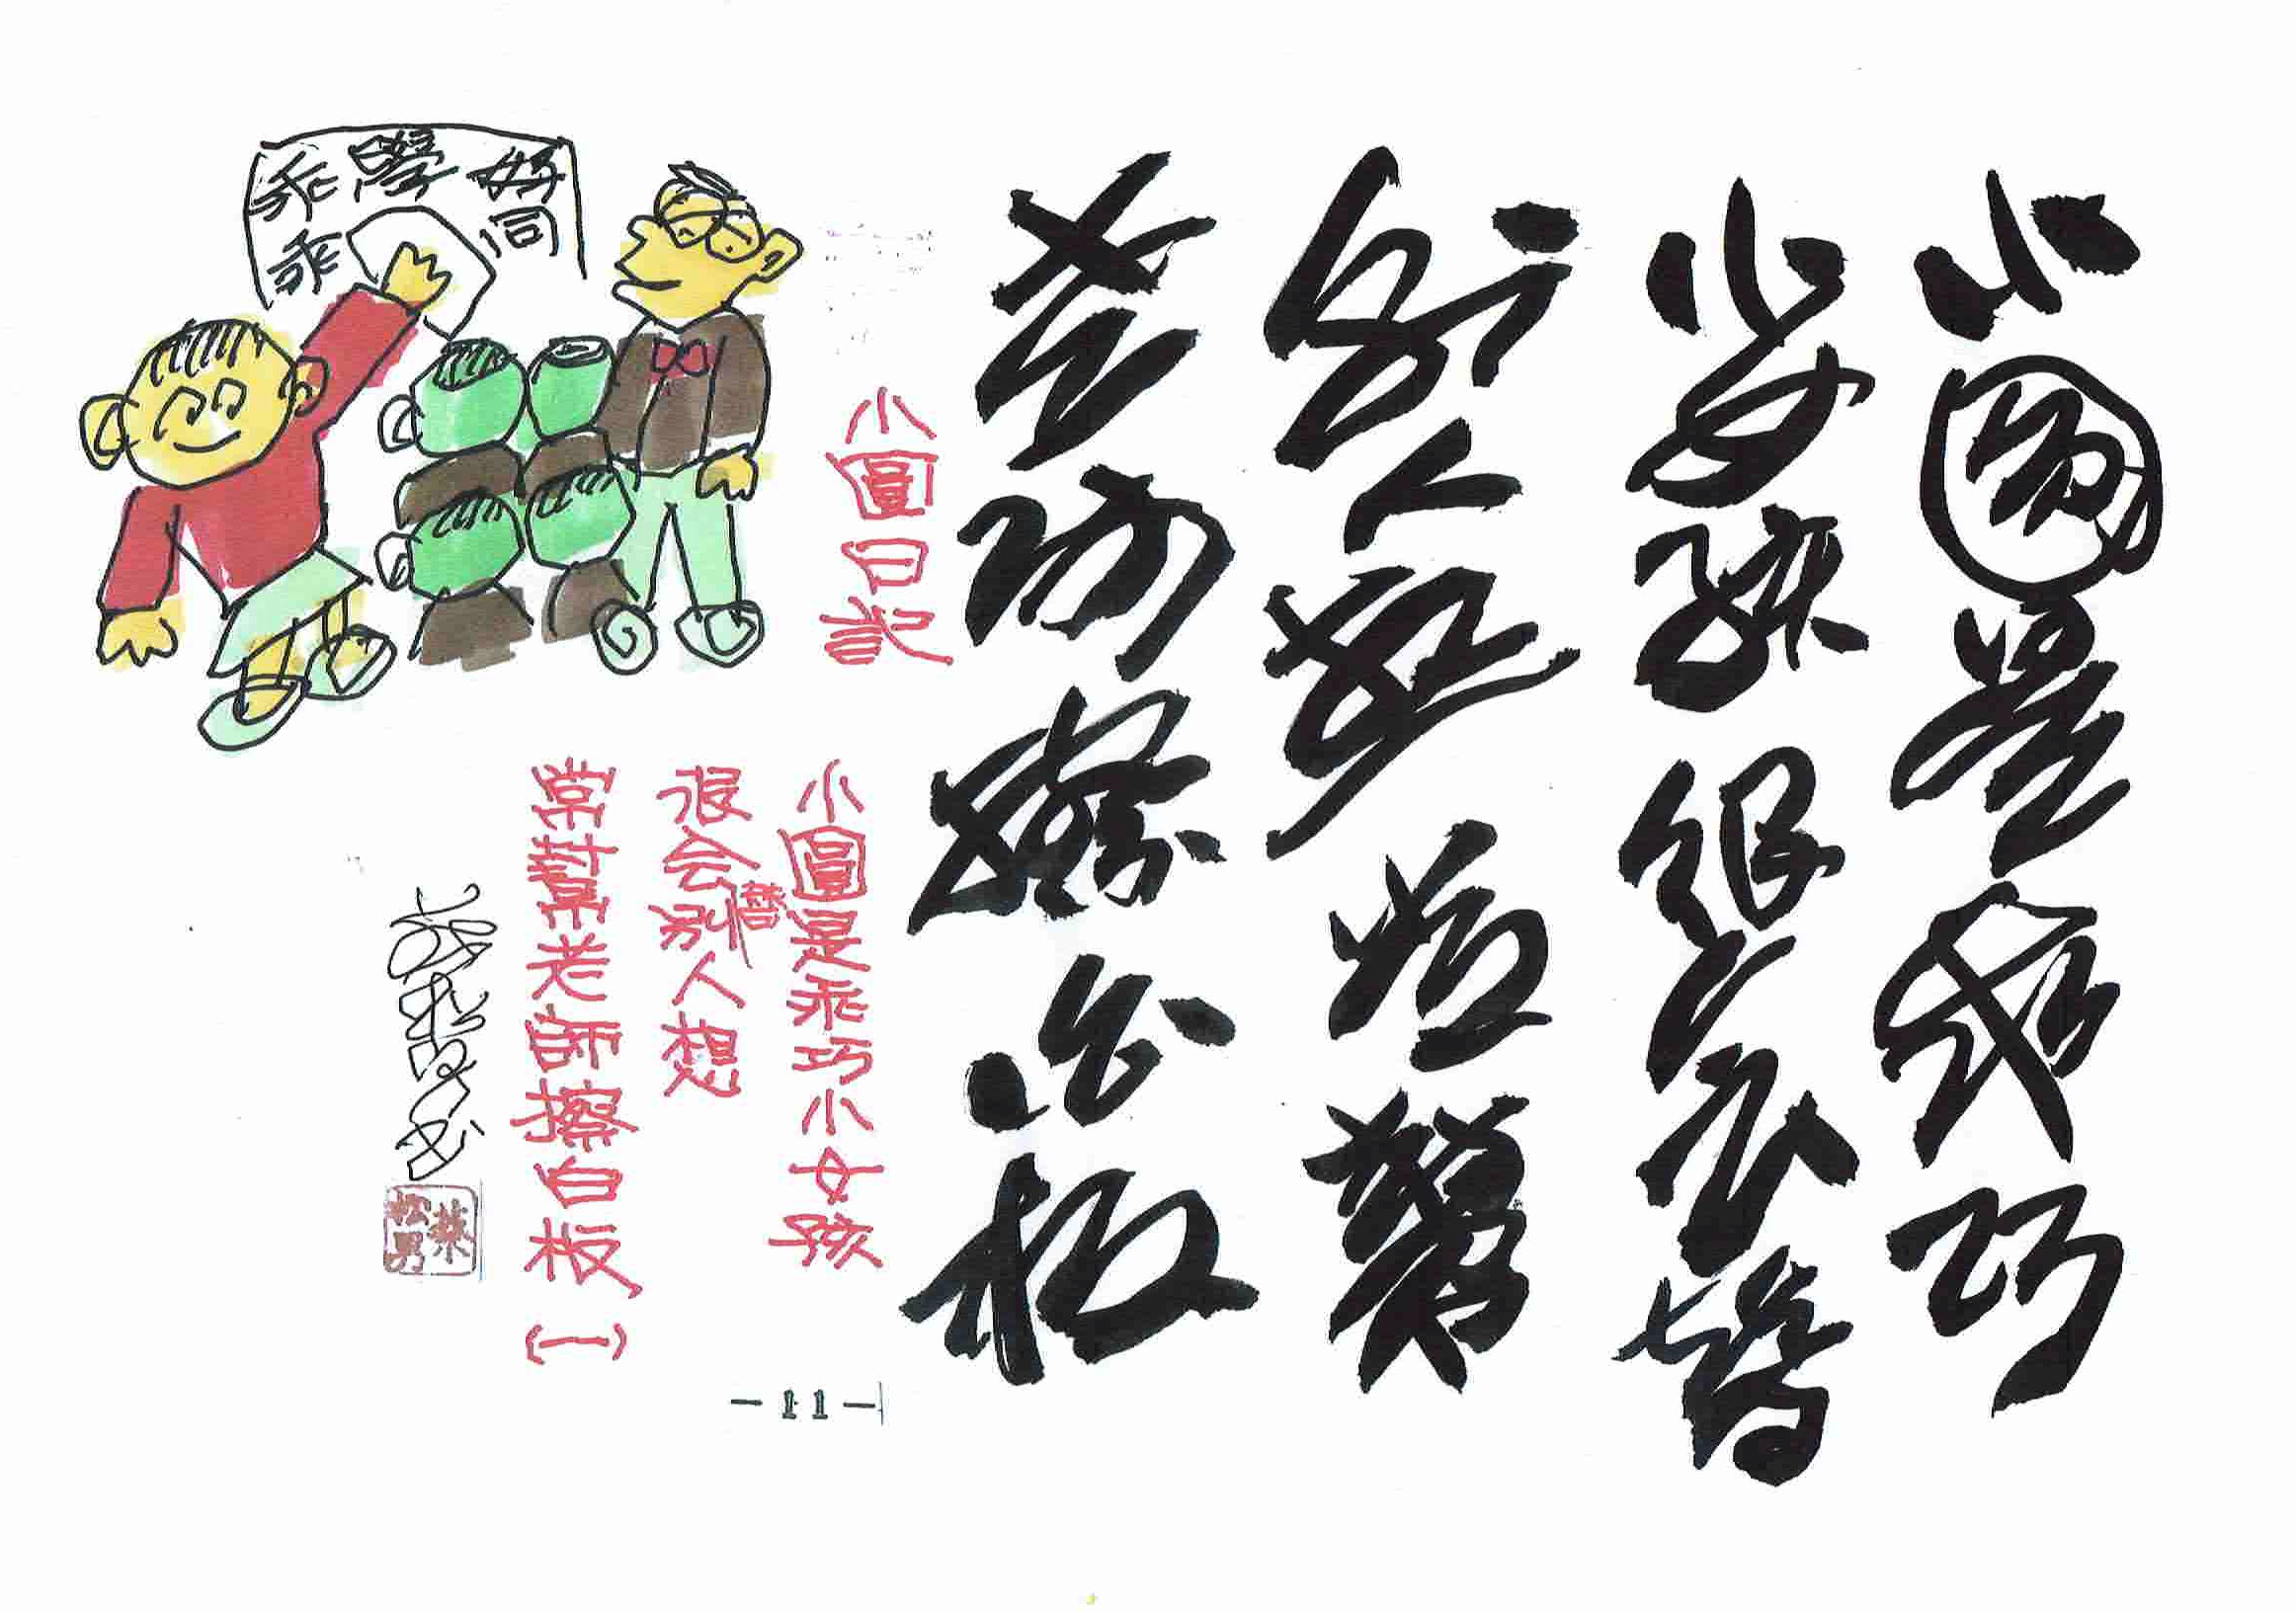 小圓是乖巧
小女孩很会替
別人想常幫
老師擦白板
小圓日記
好同
學
乖乖
小圓是乖巧小女孩
很会替別人想
常幫老師擦白板(一)
葉
松男
-11-